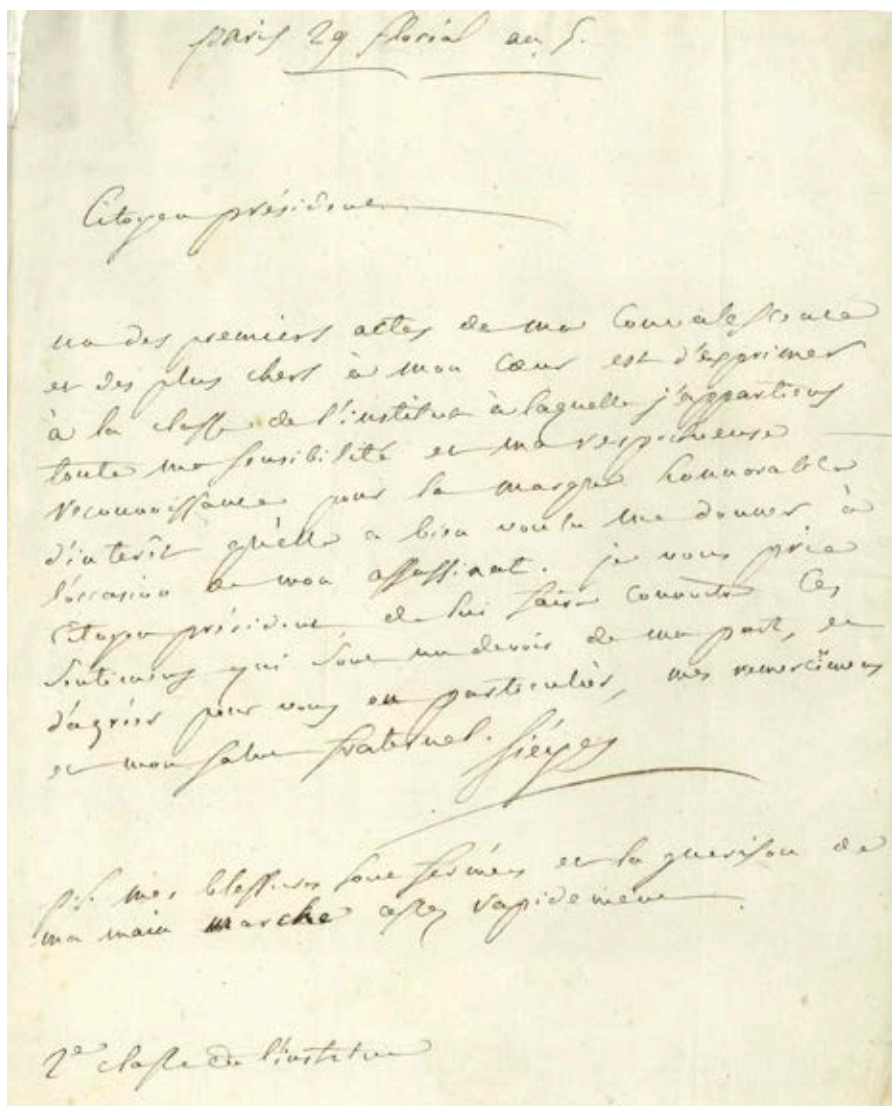 paris 29 floréal an 5.
Citoyen président
un des premiers actes de ma convalescence
et des plus chers à mon cœur est d'exprimer
à la classe de l'institut à laquelle j'appartiens
toute ma sensibilité et ma respectueuse
reconnoissance pour la marque honnorable
d'interêt qu'elle a bien voulu me donner à
l'occasion de mon assassinat. je vous prie
Citoyen président de lui faire connoitre ces
sentimens qui sont un devoir de ma part, et
d'agréer pour vous en particulier, mes remercîmens
et mon salut fraternel. Siéyes
p.s. mes blessures sont fermées et la guerison de
ma main marche assez rapidement.
2e classe de l'institut